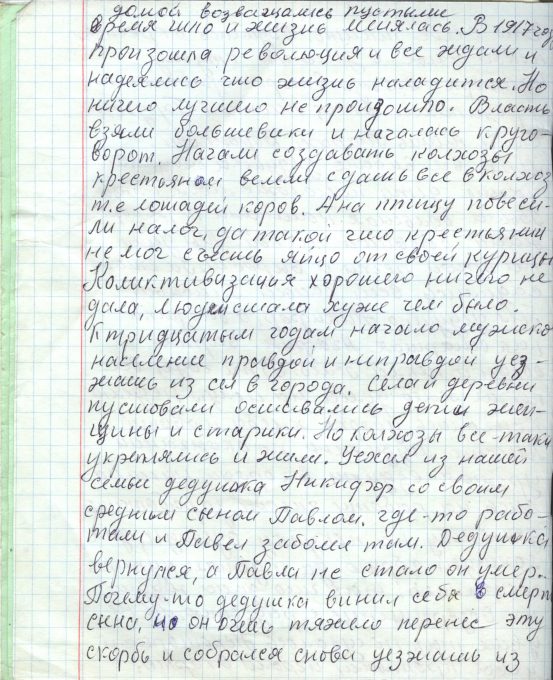 домой возвращались пустыми
время шло и жизнь менялась. В 1917 год
произошла революция и все ждали и
надеялись что жизнь наладится. Но
ничего лучшего не произошло. Власть
взяли большевики и началась круго-
ворот. Начали создавать колхозы
крестьяном велели сдать все в колхоз
т.е лошадей коров. А на птицу повеси-
ли налог, да такой что крестьянин
не мог съесть яйцо от своей курицы
Коликтивизация хорошего ничего не
дала, людем стала хуже чем было.
К тридцатым годам начало мужско
население правдой и неправдой уез-
жать из сел в города. Села и деревни
пустовали оставались дети жен-
щины и старики. Но колхозы все-таки
укреплялись и жили. Уехал из нашей
семьи дедушка Никифор со своим
средним сыном Павлом. где-то рабо-
тали и Павел заболел там. Дедушка
вернулся, а Павла не стало он умер.
Почему-то дедушка винил себя в смерт
сына, но он очень тяжело перенес эту
скорбь и собрался снова уезжать из